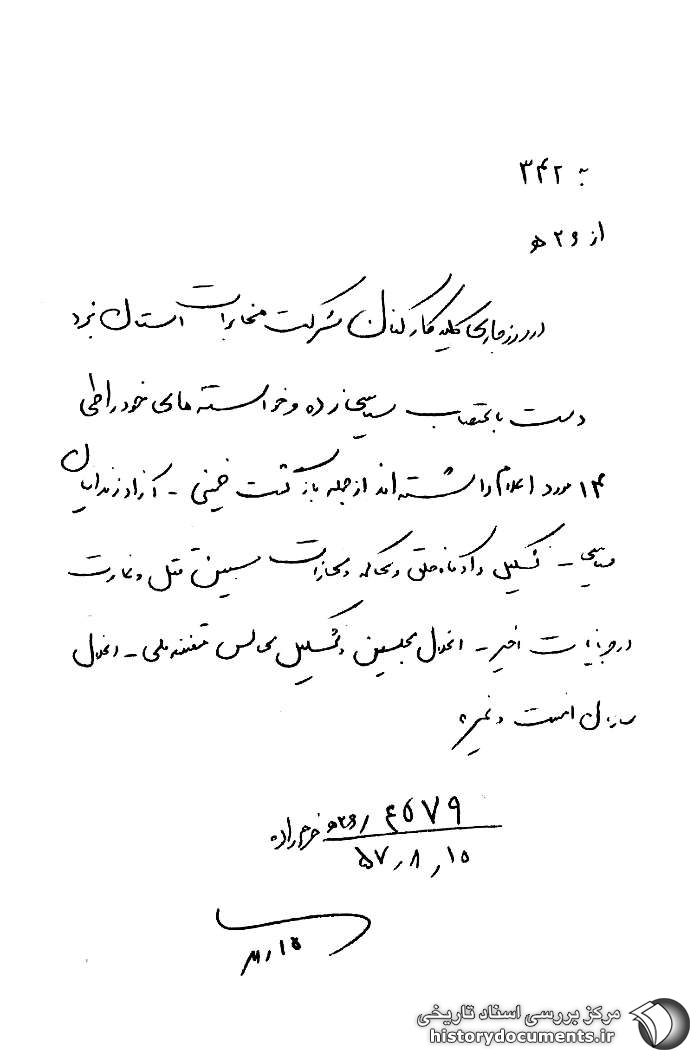 به ۳۴۲
از ۲۶ ه
در روز جاری کلیه کارکنان شرکت مخابرات استان یزد
دست باعتصاب سیاسی زده و خواسته های خود را طی
۱۴ مورد اعلام داشته اند از جمله بازگشت خمینی - آزاد زندانیان
سیاسی - تشکیل دادگاه خلق و محاکمه و مجازات مسببین قتل و غارت
در جنایات اخیر - انحلال مجلسین و تشکیل مجالس مقننه ملی - انحلال
سازمان امنیت و غیره
۴۵۷۹ / ۲۶ه خرم زاده
۵۷٫۸٫۱۵
مرکز بررسی اسناد تاریخی
historydocuments.ir